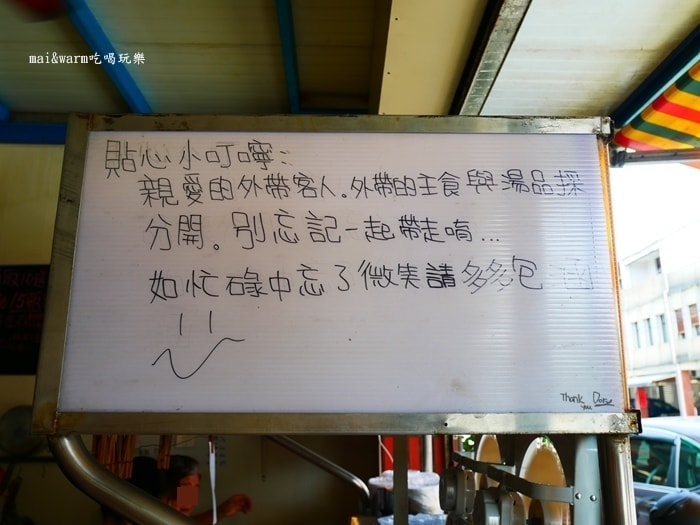 mai&warm吃喝玩樂
貼心小叮嚀:
親愛的外帶客人。外帶的主食與湯品採
分開。別忘記一起帶走唷...
如忙碌中忘了微笑請多多包涵
Thank
you